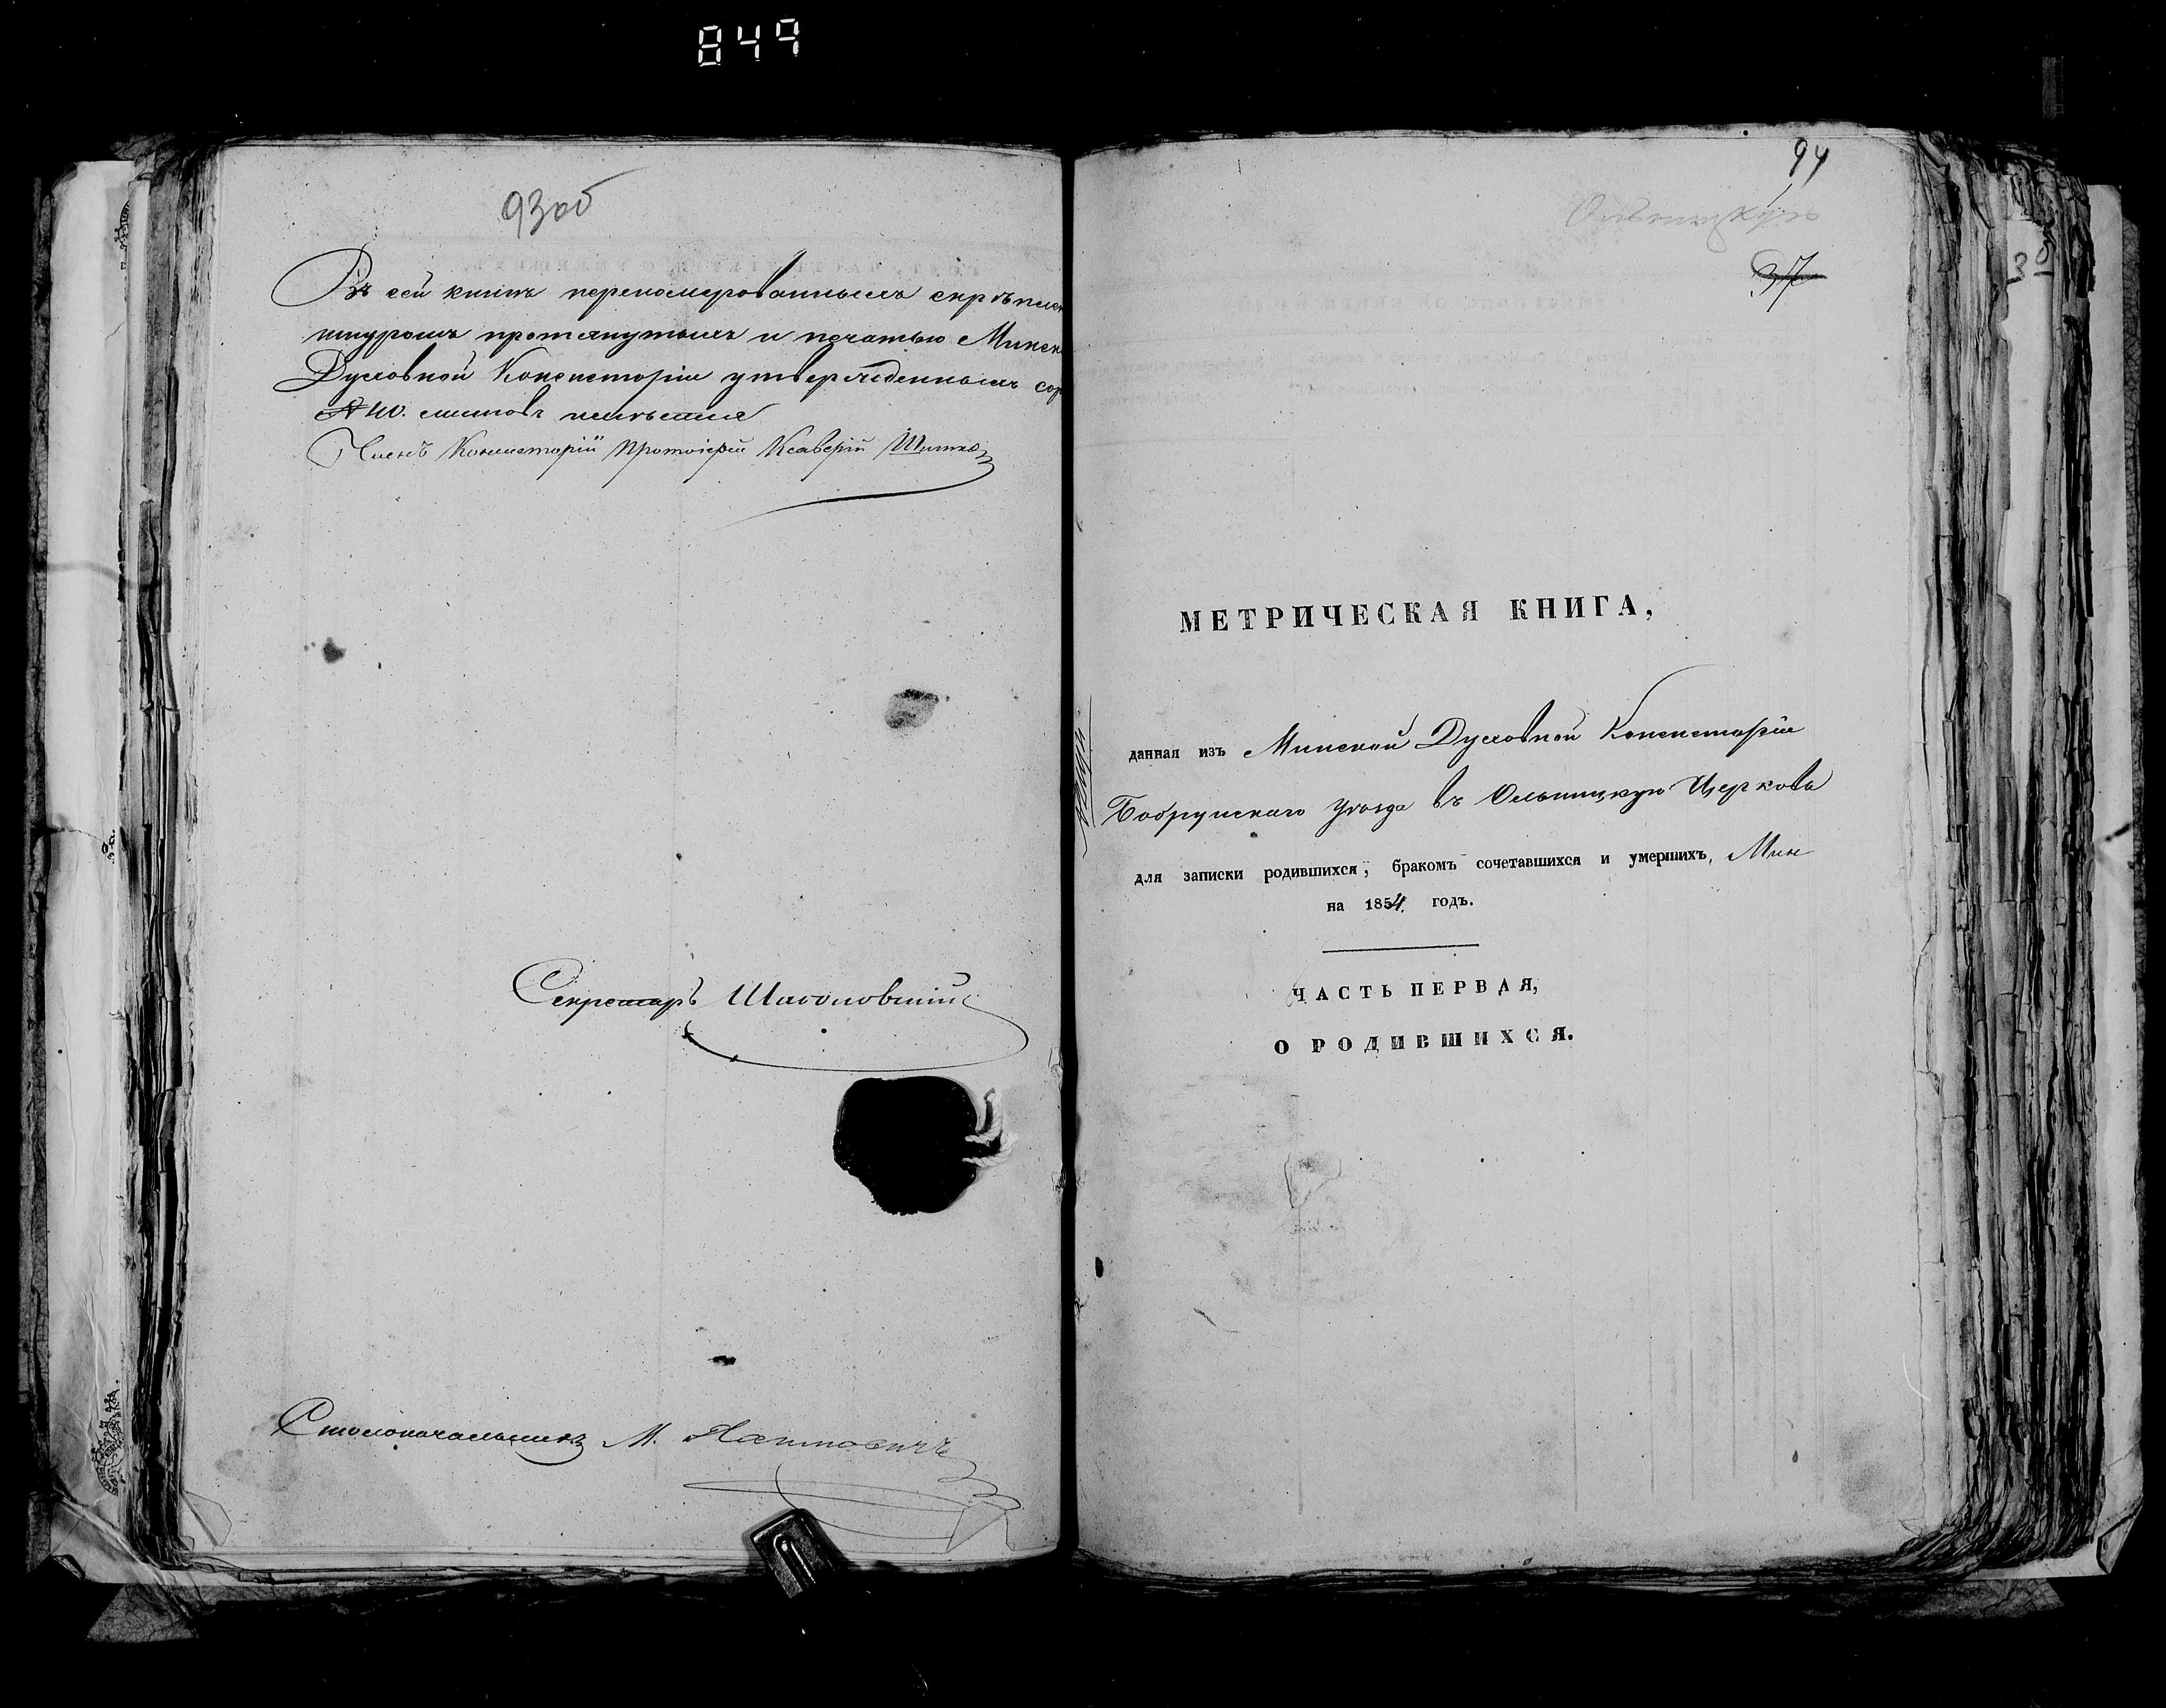 849
93об
Въ сей книгѣ переномерованныхъ скрѣплен
шнуромъ протянутыхъ и печатью Минск
Духовной Консисторіи утвержденныхъ сор
40. листовъ
Членъ Консисторіи Протоіерей Ксаверій
Секретарь
Столоначальникъ М.
94
37
МЕТРИЧЕСКАЯ КНИГА,
данная изъ Минской Духовной Консисторіи
Бобруйскаго уѣзда въ Ольницкую Церковь
для записки родившихся, бракомъ сочетавшихся и умершихъ,
на 1854 годъ.
ЧАСТЬ ПЕРВАЯ,
О РОДИВШИХСЯ.